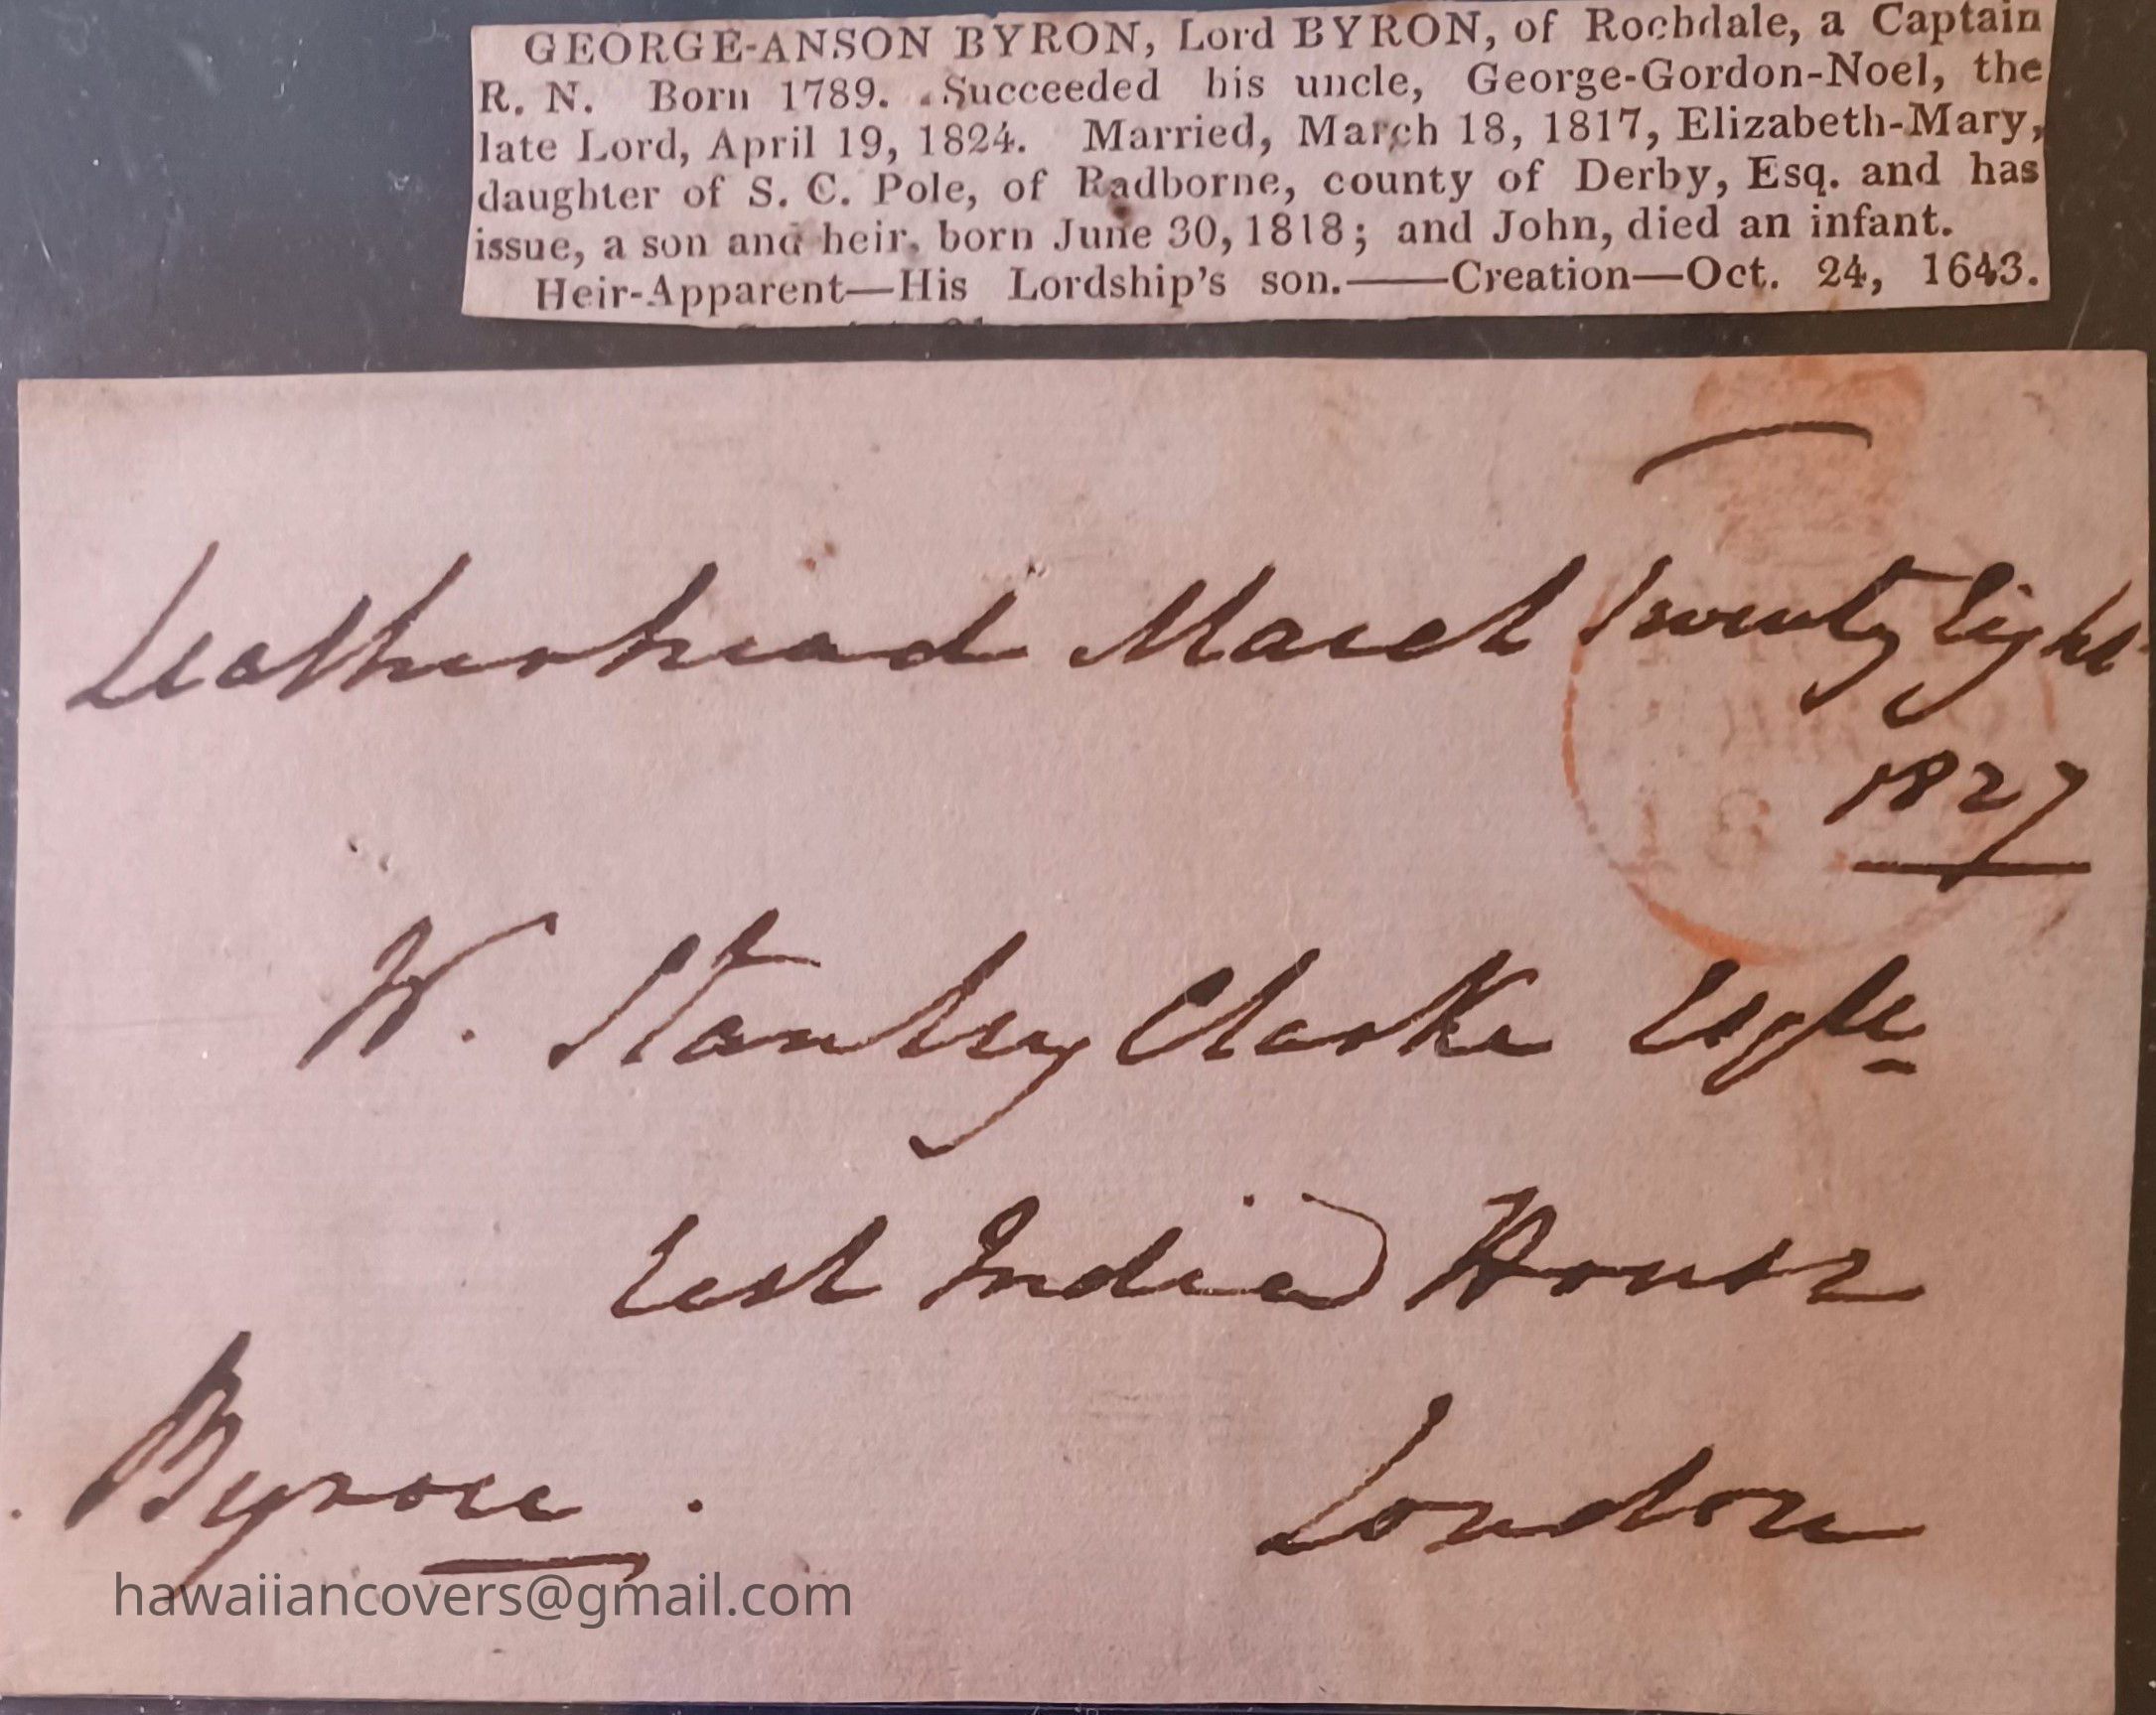 GEORGE-ANSON BYRON, Lord BYRON, of Rochdale, a Captain
R. N. Born 1789. Succeeded his uncle, George-Gordon-Noel, the
late Lord, April 19, 1824. Married, March 18, 1817, Elizabeth-Mary,
daughter of S. C. Pole, of Radborne, county of Derby, Esq. and has
issue, a son and heir, born June 30, 1818; and John, died an infant.
Heir-Apparent—His Lordship's son.——Creation—Oct. 24, 1643.
Leatherhead March Twenty Eight
1827
W. Stanley Clarke Esqre
East India House
Byron.
London
hawaiiancovers@gmail.com